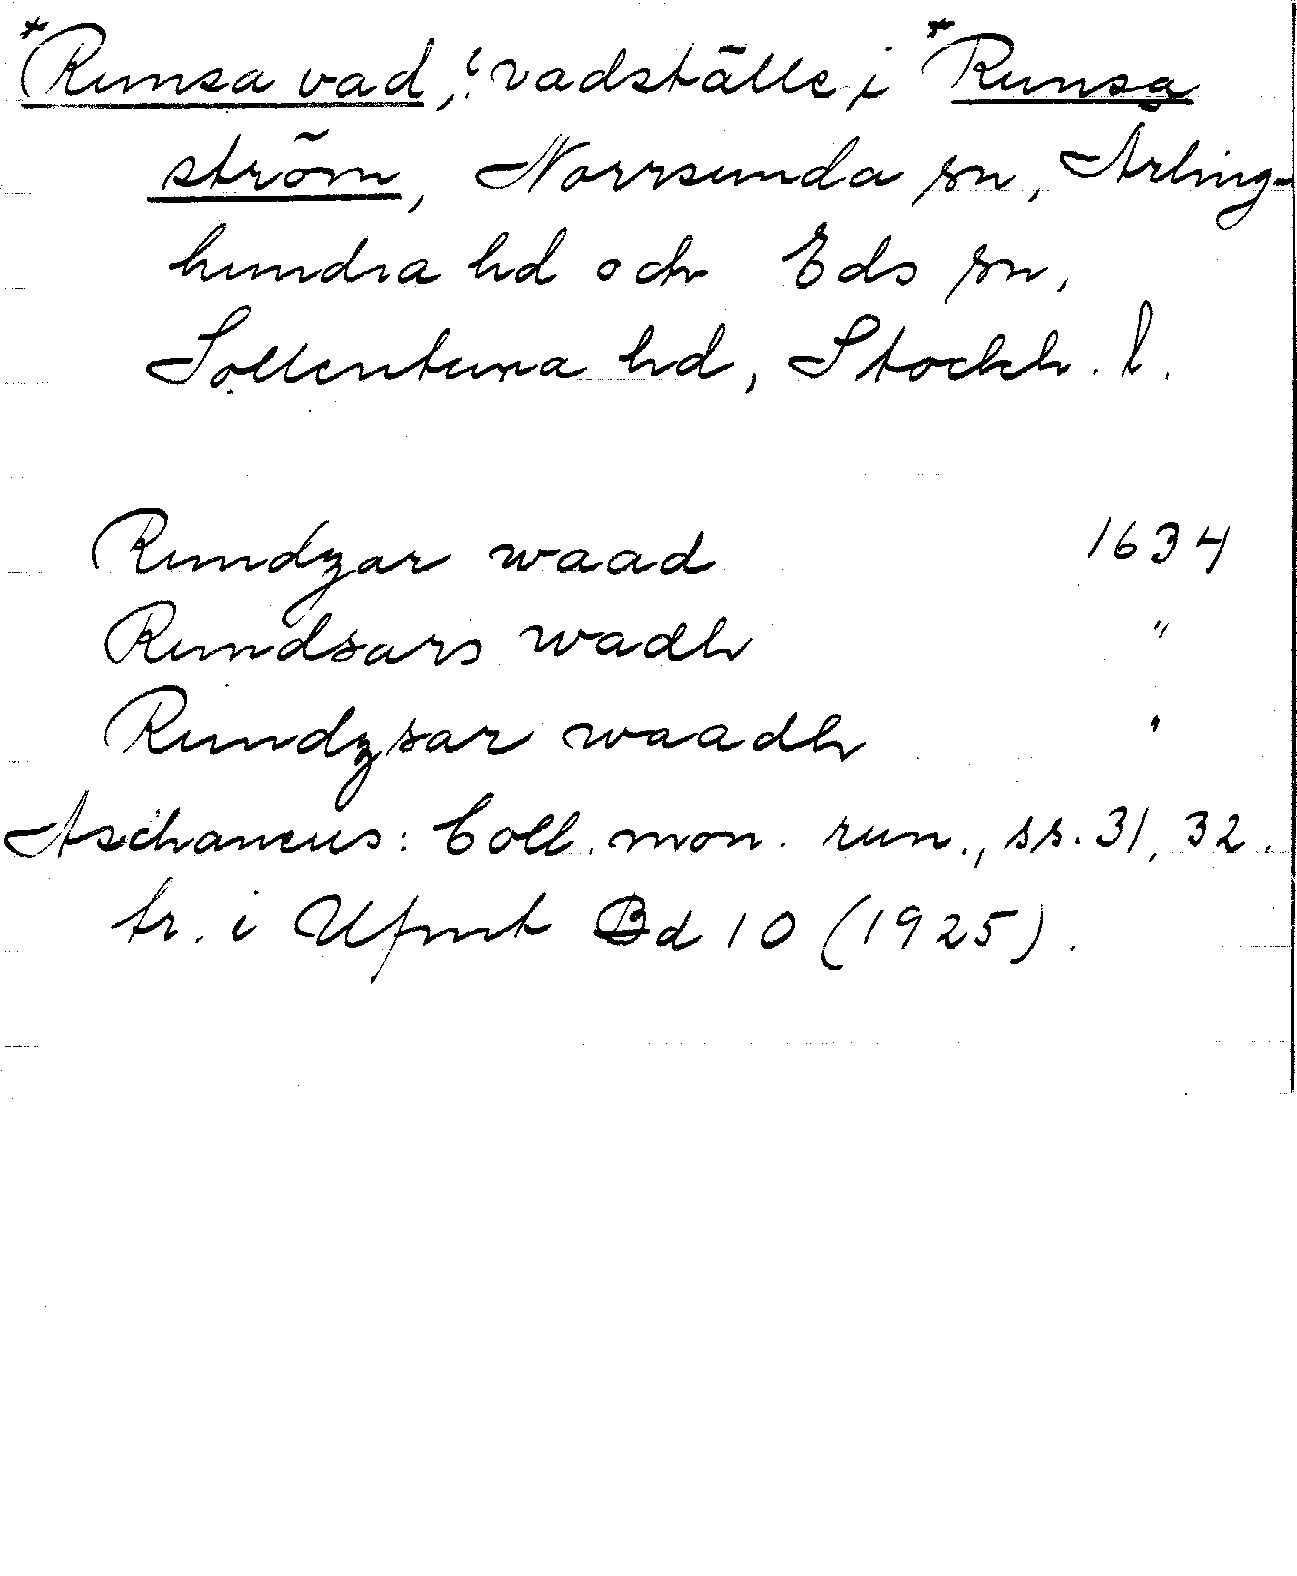 *Runsa vad, ? vadställe i *Runsa
ström, Norrsunda sn, Ärling-
hundra hd och Eds sn,
Sollentuna hd, Stockh. l.
Rundzar waad 1634
Rundsars wadh "
Rundzsar waadh "
Aschaneus: Coll. mon. run., ss. 31, 32.
tr. i Ufmt Bd 10 (1925).